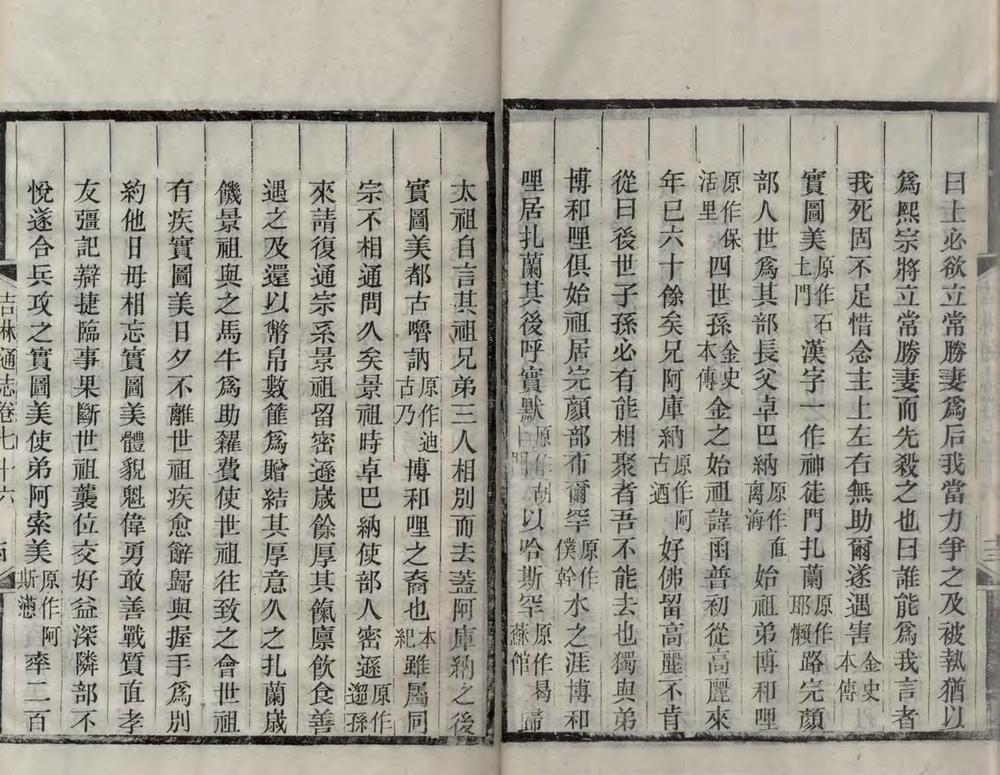 曰上必欲立常勝妻爲后我當力爭之及被執猶以
爲熙宗將立常勝妻而先殺之也曰誰能爲我言者
我死固不足惜念主上左右無助爾遂遇害金史本傳
實圖美原作石土門漢字一作神徒門扎蘭原作耶懶路完顏
部人世爲其部長父卓巴納原作直离海始祖弟博和哩
原作保活里四世孫金史本傳金之始祖諱函普初從高麗來
年已六十餘矣兄阿庫納原作阿古迺好佛留高麗不肯
從曰後世子孫必有能相聚者吾不能去也獨與弟
博和哩俱始祖居完顏部布爾罕原作僕幹水之涯博和
哩居扎蘭其後呼實默原作胡門以哈斯罕原作曷蘇館歸
太祖自言其祖兄弟三人相別而去蓋阿庫納之後
實圖美都古嚕訥原作迪古乃博和哩之裔也本紀雖屬同
宗不相通問久矣景祖時卓巴納使部人密遜原作邈孫
來請復通宗系景祖留密遜歲餘厚其餼廩飲食善
遇之及還以幣帛數篚爲贈結其厚意久之扎蘭歲
饑景祖與之馬牛爲助糴費使世祖往致之會世祖
有疾實圖美日夕不離世祖疾愈辭歸與握手爲別
約他日毋相忘實圖美體貌魁偉勇敢善戰質直孝
友彊記辯捷臨事果斷世祖襲位交好益深隣部不
悅遂合兵攻之實圖美使弟阿索美原作阿斯懣率二百
吉林通志卷七十六